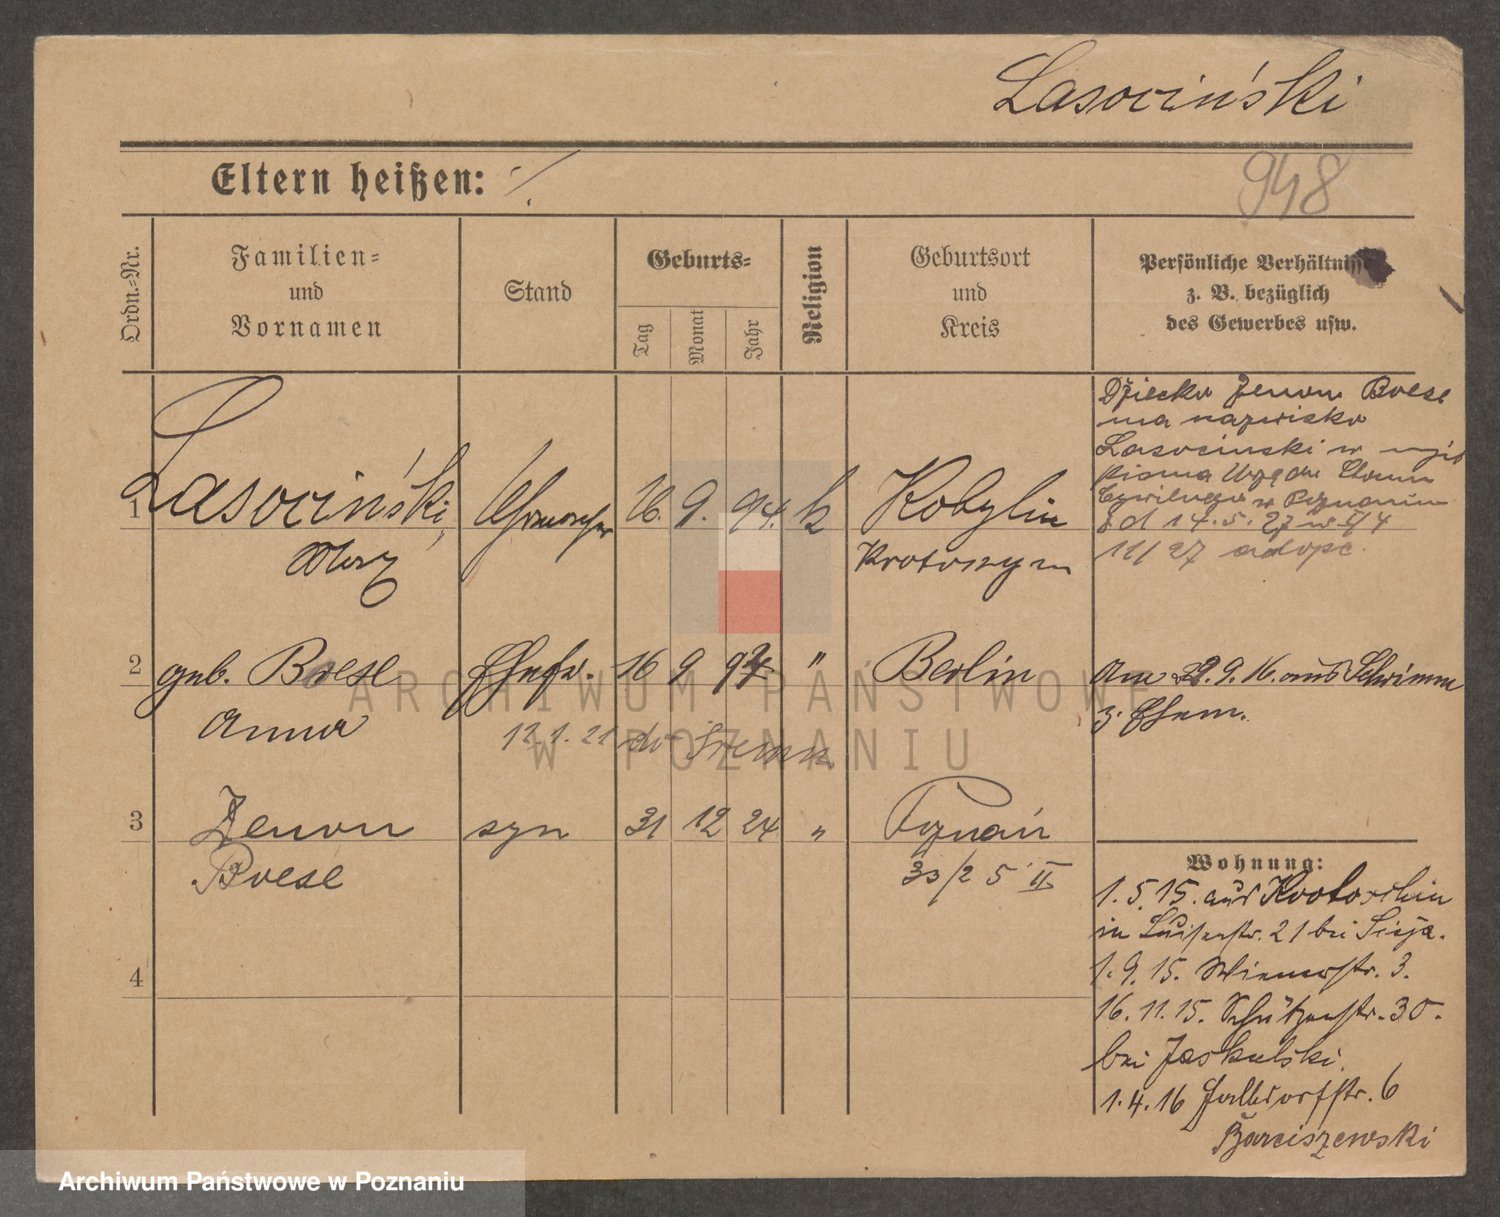 Lasociński
948
Eltern heißen: ./.
Ordn.-Nr.
Familien-
und
Vornamen
Stand
Geburts-
Tag
Monat
Jahr
Religion
Geburtsort
und
Kreis
Persönliche Verhältnisse
z. B. bezüglich
des Gewerbes usw.
1 Lasociński, 16. 9. 94. k Kobylin
Krotoszyn
Dziecko Zenon Boese
ma nazwisko
Lasocinski w myśl
pisma Urzędu Stanu
Cywilnego w Poznaniu
z d 14.5.27
11/27 adopc.
2 geb. Boese Ehefr. 16 9 94 " Berlin
Anna
12.1.21 do Śremu
Am 29.9.16. aus Schrimm
z. Ehem.
3 Zenon syn 31 12 24 " Poznań
Boese 33/25 II
4
Wohnung:
1.5.15. aus Krotoschin
in Luisenstr. 21 bei
1.9.15. Wienerstr. 3.
16.11.15. Schützenstr. 30.
bei Jaskulski.
1.4.16 6
Barciszewski
ARCHIWUM PAŃSTWOWE
W POZNANIU
Archiwum Państwowe w Poznaniu